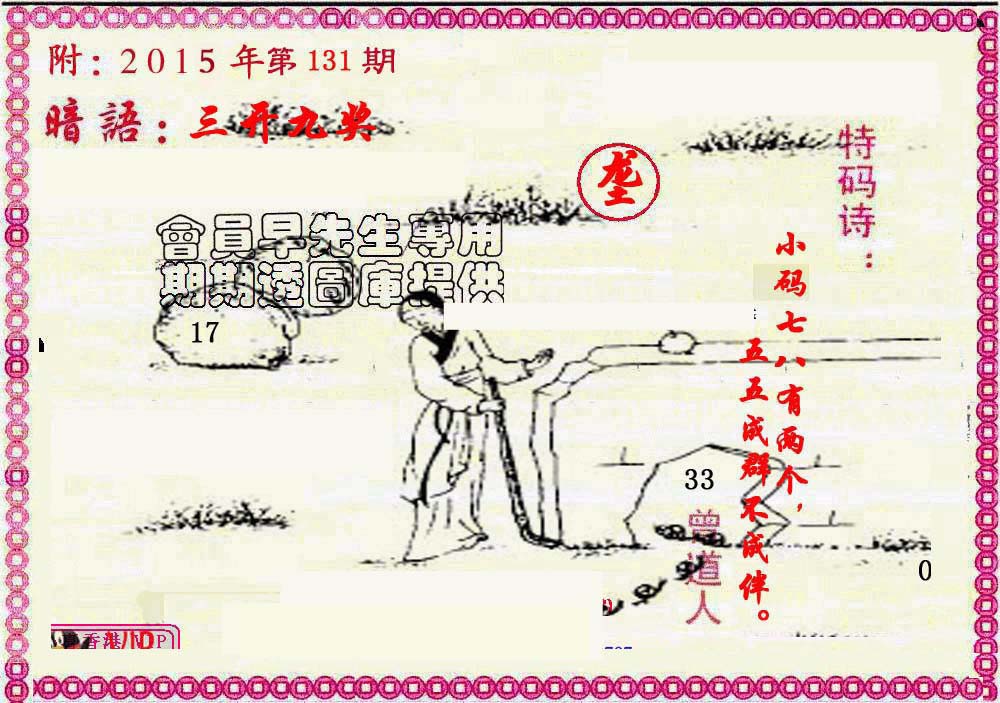 附：2015年第131期
暗語：三开九奖
垄
特码诗：
小码七八有两个，
五五成群不成伴。
會員早先生專用
期期透圖庫提供
17
33
曾道人
0
香港